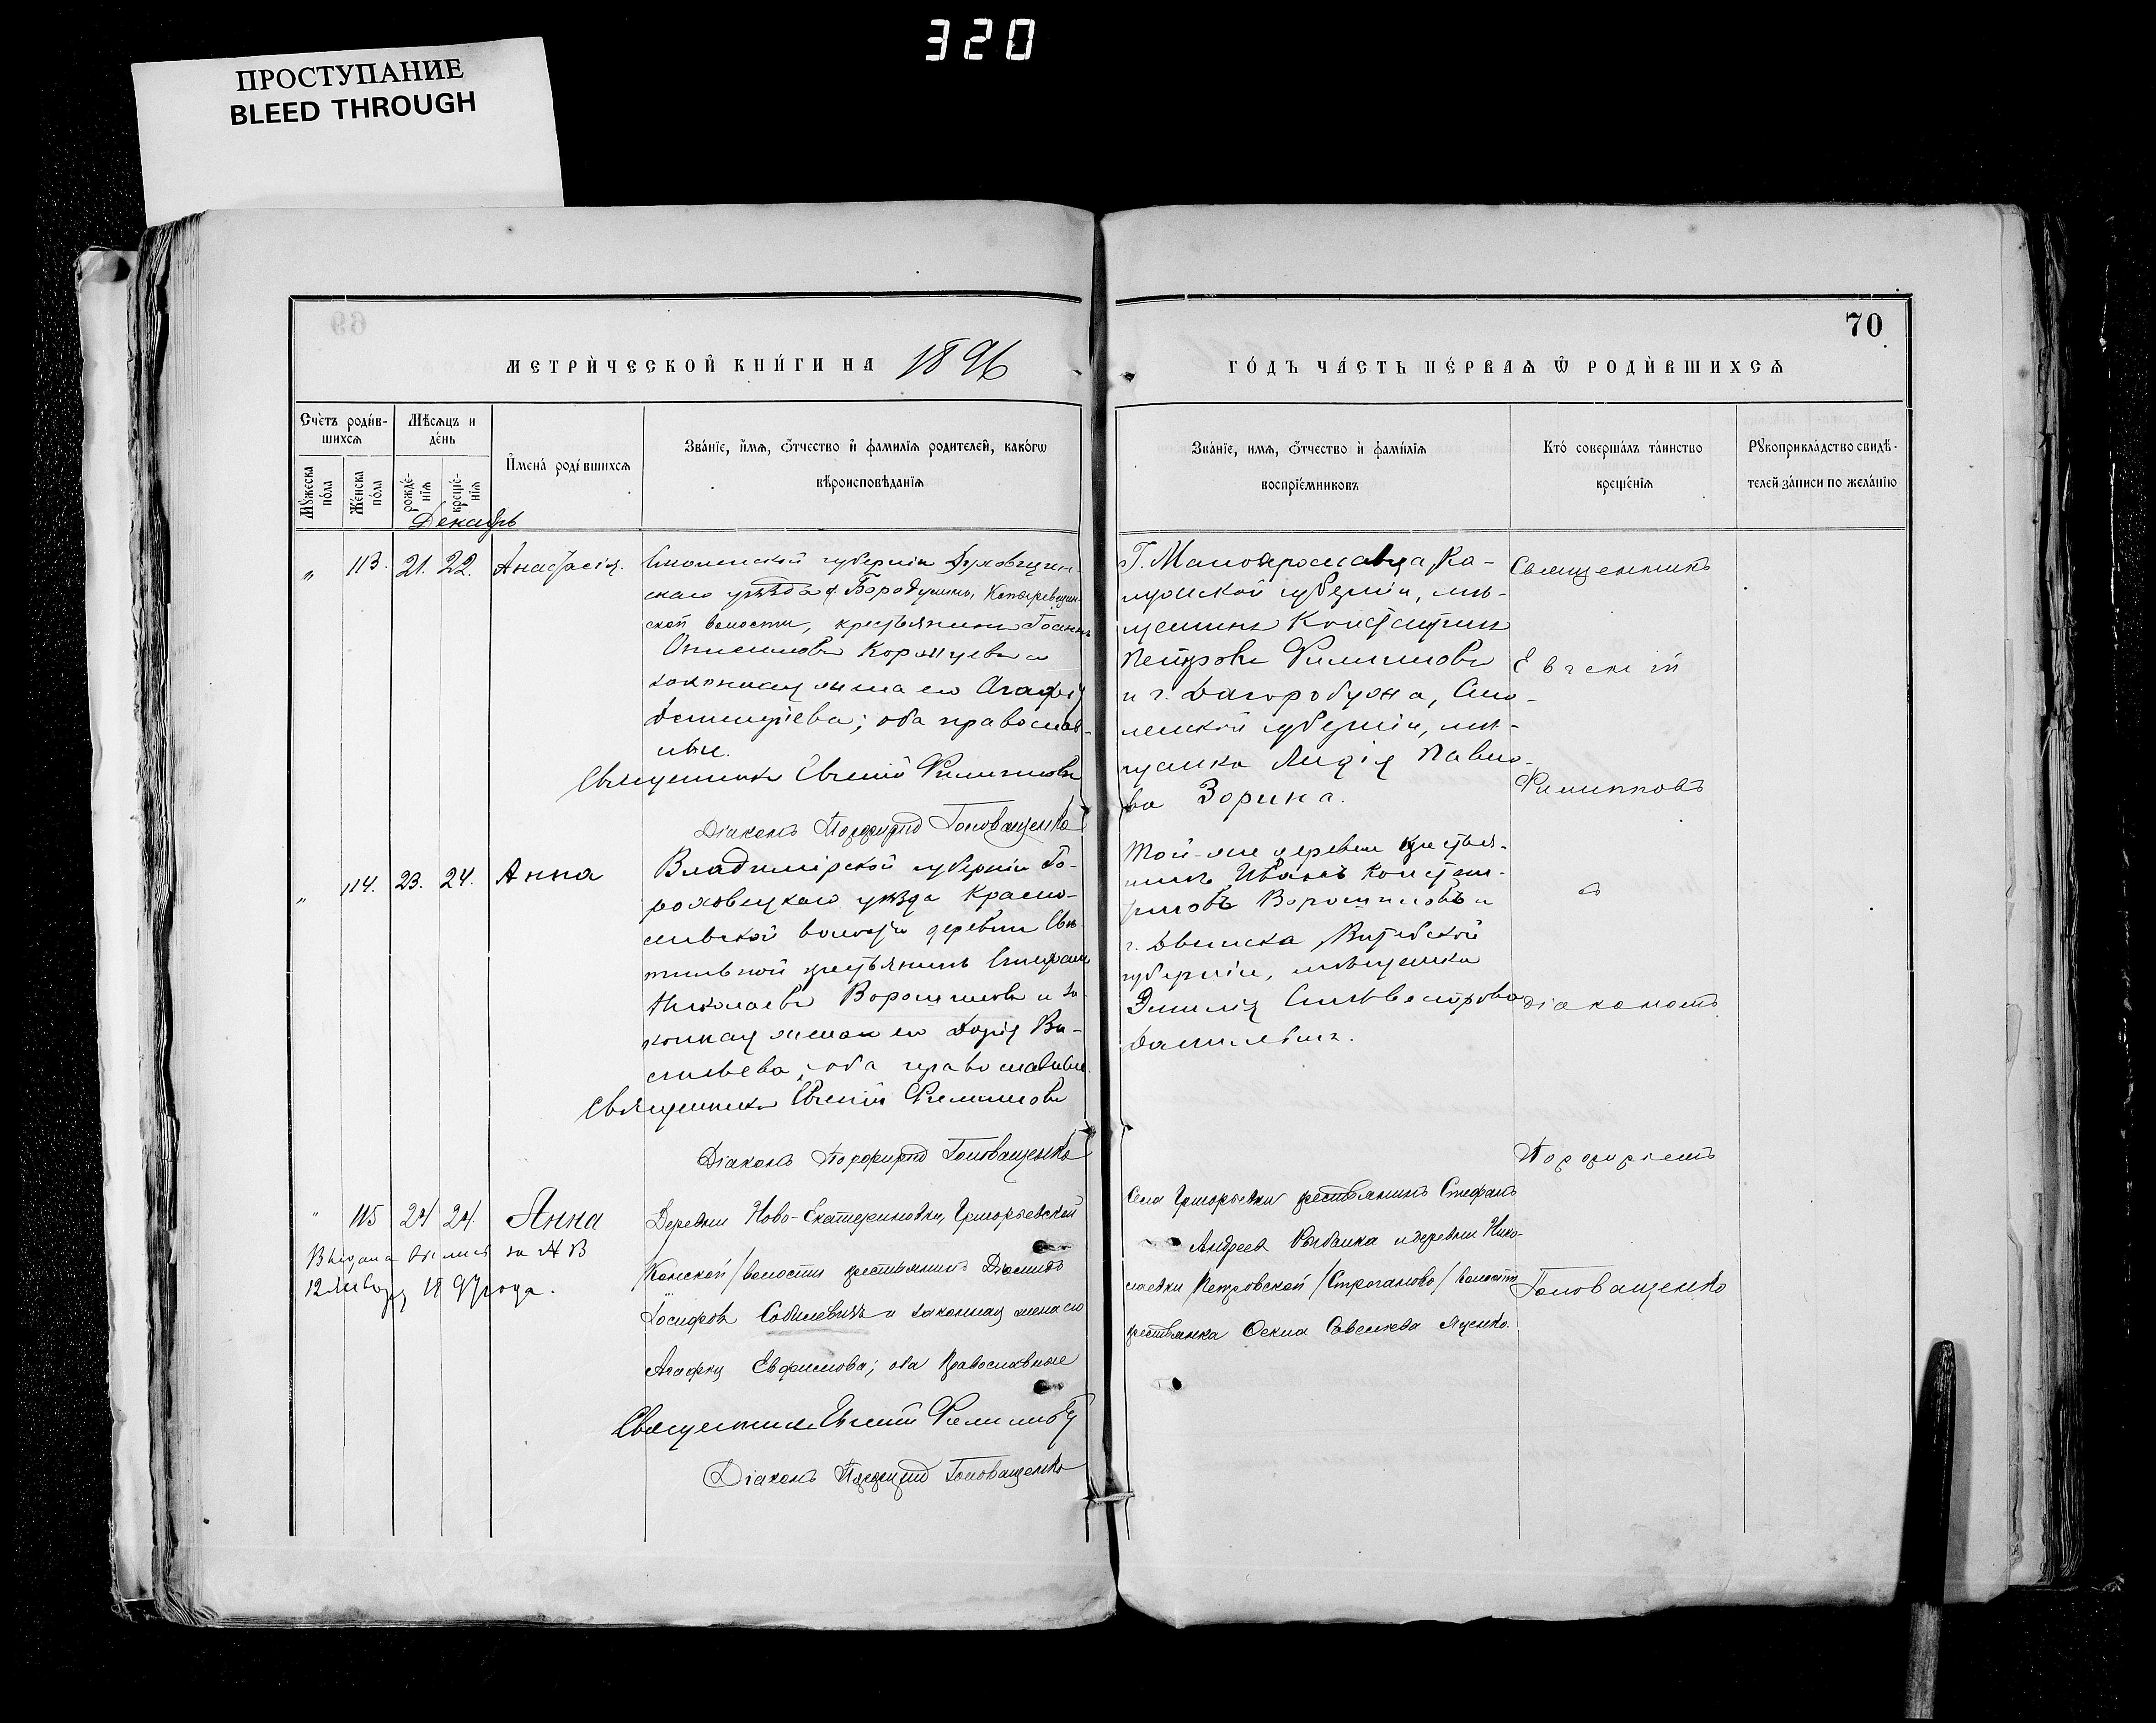 320
ПРОСТУПАНИЕ
BLEED THROUGH
МЕТРИ́ЧЕСКОЙ КНИ́ГИ НА 1896
ГО́ДЪ ЧА́СТЬ ПЕ́РВАѦ Ѿ РОДИ́ВШИХСѦ
70
Счетъ роди́в-
шихсѧ
Мꙋ́жеска по́ла
Же́нска по́ла
Мѣ́сѧцъ и
де́нь
рожде́-нїѧ
креще́-нїѧ
Имена́ роди́вшихсѧ
Зва́нїе, и́мѧ, ѻ́тчество и фамилїѧ родителей, како́гѡ
вѣроисповѣ́данїѧ
Зва́нїе, имѧ, ѻ́тчество и фами́лїѧ
воспрїе́мниковъ
Кто́ соверша́лъ та́инство
креще́нїѧ
Рꙋкоприкла́дство свидѣ́-
телей за́писи по жела́нїю
Декабрь
„ 113. 21. 22. Анастасія.
Смоленской губерніи Духовщин-
скаго уѣзда д. Бородулино,
ской волости, крестьянинъ Іоаннъ
Анисимовъ и
законная жена его Агафія
Димитріева; оба православ-
ные.
Священникъ Евгеній Филипповъ
Діаконъ Порфирій Головащенко
Г. Малоярославца, Ка-
лужской губерніи, мѣ-
щанинъ Константинъ
Петровъ Филипповъ
и г. Дагоробужа, Смо-
ленской губерніи, мѣ-
щанка Лидія Павло-
ва Зорина.
Священникъ
Евгеній
Филипповъ
„ 114. 23. 24. Анна
Владимірской губерніи Го-
роховецкаго уѣзда Красно-
сельской волости деревни
крестьянинъ
Николаевъ Ворошиловъ и за-
конная жена его Дарія Ва-
сильева, оба православные.
Священникъ Евгеній Филипповъ
Діаконъ Порфирій Головащенко
Той-же деревни крестья-
нинъ Иванъ Констан-
тиновъ Ворошиловъ и
г. Двинска Витебской
губерніи, мѣщанка
Эмилія Сильвестрова
Данилевичъ.
съ
діакономъ
Порфиріемъ
Головащенко
„ 115 24 24. Анна
Выдана выпись за № 13
12 Января 1897 года.
Деревни Ново-Екатериновки, Григорьевской
/Конской/ волости крестьянинъ
Іосифовъ Собилевичъ и законная жена его
Агафія Евфимова; оба православные
Священникъ Евгеній Филипповъ
Діаконъ Порфирій Головащенко
Села Григорьевки крестьянинъ Стефанъ
Андреевъ Рыбалка и деревни Нико-
лаевки Петровской /Строганово/ волости
крестьянка Оекла Савельева Яценко.